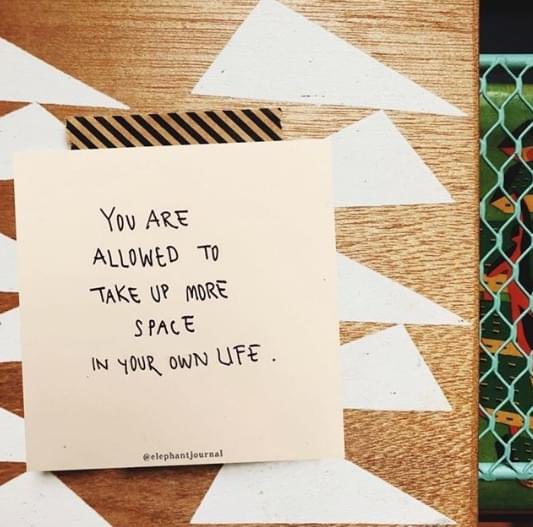 YOU ARE
ALLOWED TO
TAKE UP MORE
SPACE
IN YOUR OWN LIFE.
@elephantjournal